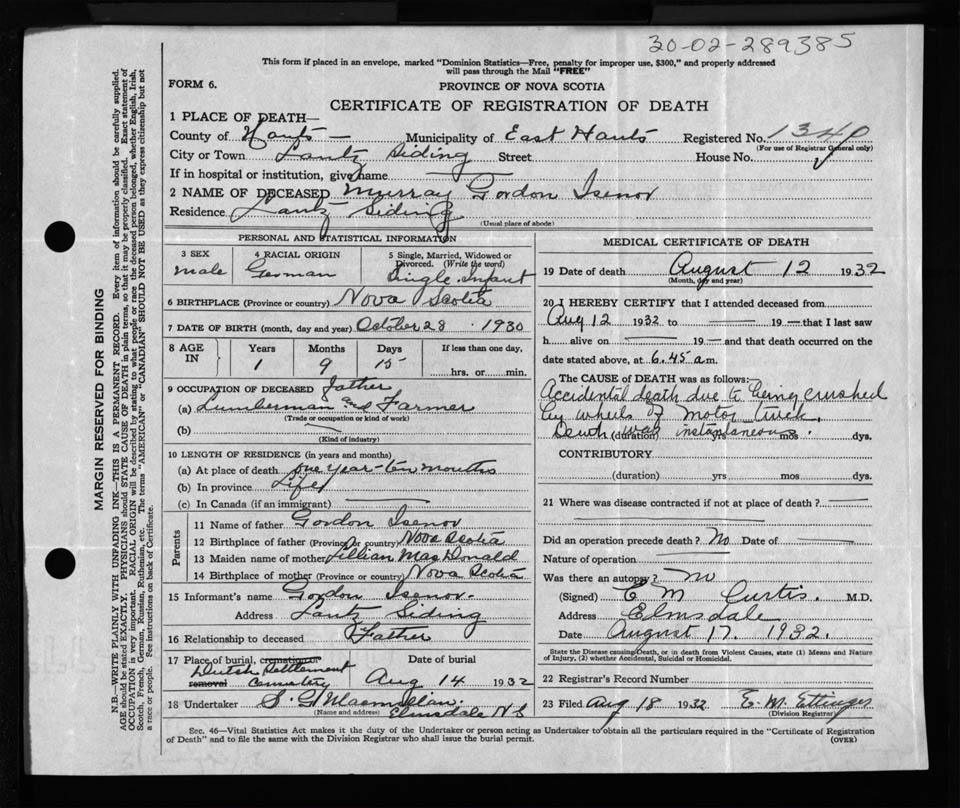 30-02-289385
This form if placed in an envelope, marked "Dominion Statistics—Free, penalty for improper use, $300," and properly addressed
will pass through the Mail "FREE"
FORM 6.
PROVINCE OF NOVA SCOTIA
CERTIFICATE OF REGISTRATION OF DEATH
1 PLACE OF DEATH—
County of Hants — Municipality of East Hants Registered No.
(For use of Registrar General only)
City or Town Lantz Siding Street House No.
If in hospital or institution, give name —
2 NAME OF DECEASED Murray Gordon Isenor
Residence Lantz Siding
(Usual place of abode)
PERSONAL AND STATISTICAL INFORMATION
3 SEX
male
4 RACIAL ORIGIN
German
5 Single, Married, Widowed or
Divorced. (Write the word)
Single Infant
6 BIRTHPLACE (Province or country) Nova Scotia
7 DATE OF BIRTH (month, day and year) October 28 1930
8 AGE IN
Years Months Days If less than one day,
1 9 15 hrs. or min.
9 OCCUPATION OF DECEASED father
(a) Lumberman and Farmer
(Trade or occupation or kind of work)
(b)
(Kind of industry)
10 LENGTH OF RESIDENCE (in years and months)
(a) At place of death one year – ten months
(b) In province Life
(c) In Canada (if an immigrant) —
Parents
11 Name of father Gordon Isenor
12 Birthplace of father (Province or country) Nova Scotia
13 Maiden name of mother Lillian MacDonald
14 Birthplace of mother (Province or country) Nova Scotia
15 Informant's name Gordon Isenor.
Address Lantz Siding
16 Relationship to deceased Father
17 Place of burial, cremation or removal Date of burial
Dutch Settlement
Cemetery Aug 14 1932
18 Undertaker S. G. Macmillan.
(Name and address) Elmsdale N S
MEDICAL CERTIFICATE OF DEATH
19 Date of death August 12 1932
(Month, day and year)
20 I HEREBY CERTIFY that I attended deceased from
Aug 12 1932 to — 19 — that I last saw
h alive on — 19 — and that death occurred on the
date stated above, at 6.45 a.m.
The CAUSE OF DEATH was as follows:
Accidental death due to being crushed
by wheels of motor truck.
Death was instantaneous.
(duration) yrs mos dys.
CONTRIBUTORY
(duration) yrs mos dys.
21 Where was disease contracted if not at place of death? —
Did an operation precede death? No Date of —
Nature of operation —
Was there an autopsy? no
(Signed) E M Curtis. M.D.
Address Elmsdale
Date August 17. 1932.
State the Disease causing Death, or in death from Violent Causes, state (1) Means and Nature
of Injury, (2) whether Accidental, Suicidal or Homicidal.
22 Registrar's Record Number
23 Filed Aug 18 1932 E. M. Ettinger
(Division Registrar)
Sec. 46—Vital Statistics Act makes it the duty of the Undertaker or person acting as Undertaker to obtain all the particulars required in the "Certificate of Registration
of Death" and to file the same with the Division Registrar who shall issue the burial permit.
(OVER)
MARGIN RESERVED FOR BINDING
N.B.—WRITE PLAINLY WITH UNFADING INK—THIS IS A PERMANENT RECORD. Every item of information should be carefully supplied.
AGE should be stated EXACTLY. PHYSICIANS should STATE CAUSE OF DEATH in plain terms, so that it may be properly classified. Exact statement of
OCCUPATION is very important. RACIAL ORIGIN will be described by stating to what people or race the deceased person belonged, whether English, Irish,
Scotch, French, German, Russian, Ruthenian, etc. The terms "AMERICAN" or "CANADIAN" SHOULD NOT BE USED as they express citizenship but not
a race or people. See instructions on back of Certificate.